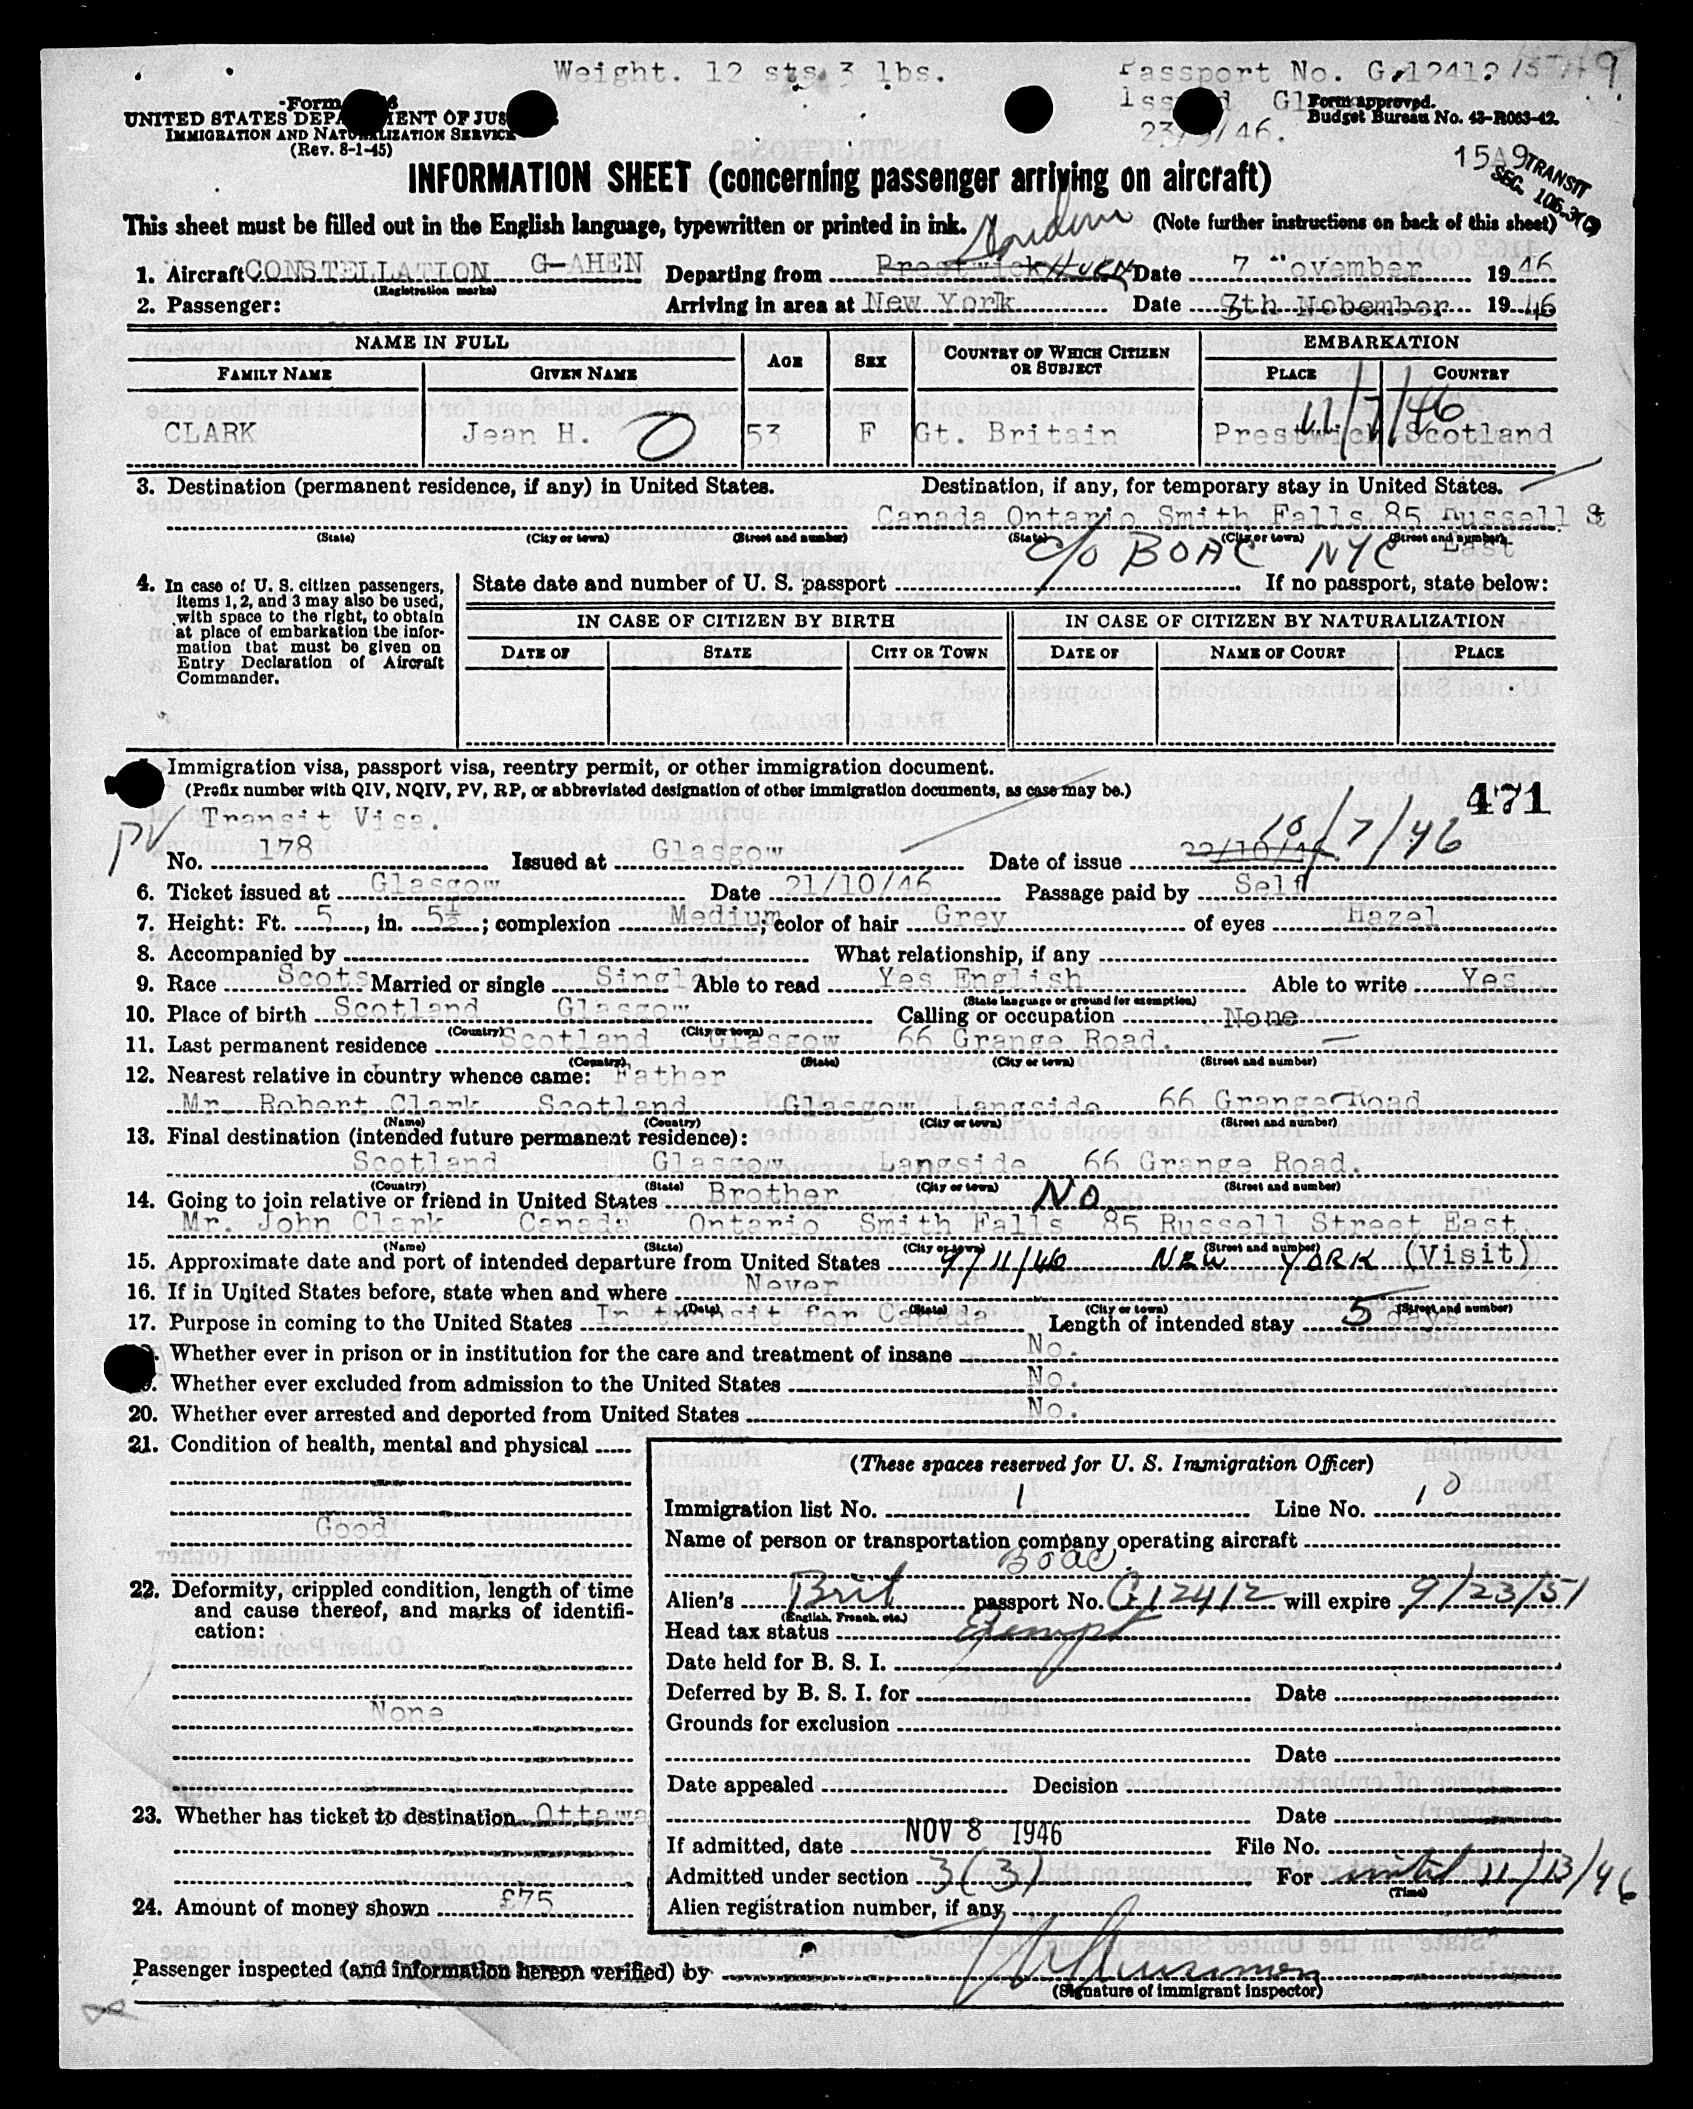 Weight. 12 sts. 3 lbs. Passport No. G.12412
Form
UNITED STATES DEPARTMENT OF JUSTICE Form approved.
IMMIGRATION AND NATURALIZATION SERVICE Budget Bureau No. 43-R063-42.
(Rev. 8-1-45) 23/9/46.
15A9 TRANSIT
SEC. 106.3(
INFORMATION SHEET (concerning passenger arriving on aircraft)
This sheet must be filled out in the English language, typewritten or printed in ink. London (Note further instructions on back of this sheet)
1. Aircraft CONSTELLATION G-AHEN Departing from Prestwick HURN Date 7 November 19 46
(Registration marks)
2. Passenger: Arriving in area at New York Date 8th Nobember 19 46
NAME IN FULL AGE SEX COUNTRY OF WHICH CITIZEN OR SUBJECT EMBARKATION
FAMILY NAME GIVEN NAME PLACE COUNTRY
11/7/46
CLARK Jean H. 53 F Gt. Britain Prestwick Scotland
3. Destination (permanent residence, if any) in United States. Destination, if any, for temporary stay in United States.
Canada Ontario Smith Falls 85 Russell St
(State) (City or town) (Street and number) (State) (City or town) (Street and number) East
c/o BOAC NYC
4. In case of U. S. citizen passengers, items 1, 2, and 3 may also be used, with space to the right, to obtain at place of embarkation the information that must be given on Entry Declaration of Aircraft Commander.
State date and number of U. S. passport If no passport, state below:
IN CASE OF CITIZEN BY BIRTH IN CASE OF CITIZEN BY NATURALIZATION
DATE OF STATE CITY OR TOWN DATE OF NAME OF COURT PLACE
Immigration visa, passport visa, reentry permit, or other immigration document.
(Prefix number with QIV, NQIV, PV, RP, or abbreviated designation of other immigration documents, as case may be.) 471
PV Transit Visa.
No. 178 Issued at Glasgow Date of issue 22/10/46 10/7/46
6. Ticket issued at Glasgow Date 21/10/46 Passage paid by Self
7. Height: Ft. 5, in. 5½; complexion Medium; color of hair Grey of eyes Hazel
8. Accompanied by What relationship, if any
9. Race Scots Married or single Single Able to read Yes English Able to write Yes
(State language or ground for exemption)
10. Place of birth Scotland Glasgow Calling or occupation None
(Country) (City or town)
11. Last permanent residence Scotland Glasgow 66 Grange Road.
(Country) (State) (City or town) (Street and number)
12. Nearest relative in country whence came: Father
Mr. Robert Clark Scotland Glasgow Langside 66 Grange Road
(Name) (Country) (City or town) (Street and number)
13. Final destination (intended future permanent residence):
Scotland Glasgow Langside 66 Grange Road.
(Country) (State) (City or town) (Street and number)
14. Going to join relative or friend in United States Brother NO
Mr. John Clark Canada Ontario Smith Falls 85 Russell Street East.
(Name) (State) (City or town) (Street and number)
15. Approximate date and port of intended departure from United States 9/11/46 NEW YORK (Visit)
16. If in United States before, state when and where Never
(Date) (State) (City or town) (Street and number)
17. Purpose in coming to the United States In transit for Canada Length of intended stay 5 days
Whether ever in prison or in institution for the care and treatment of insane No.
Whether ever excluded from admission to the United States No.
20. Whether ever arrested and deported from United States No.
21. Condition of health, mental and physical
Good
22. Deformity, crippled condition, length of time and cause thereof, and marks of identification:
None
23. Whether has ticket to destination Ottawa
24. Amount of money shown £75
(These spaces reserved for U. S. Immigration Officer)
Immigration list No. 1 Line No. 10
Name of person or transportation company operating aircraft
BOAC.
Alien's Brit passport No. G12412 will expire 9/23/51
(English, French, etc.)
Head tax status Exempt
Date held for B. S. I.
Deferred by B. S. I. for Date
Grounds for exclusion
Date
Date appealed Decision
Date
If admitted, date NOV 8 1946 File No.
Admitted under section 3(3) For until 11/13/46
(Time)
Alien registration number, if any
Passenger inspected (and information hereon verified) by
(Signature of immigrant inspector)